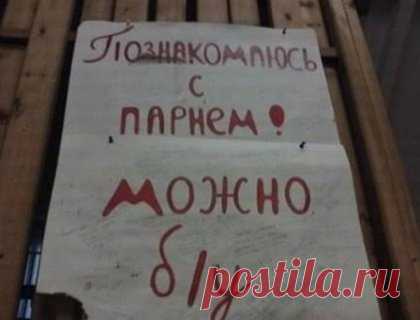 Познакомлюсь
с
парнем!
можно
б/у
postila.ru